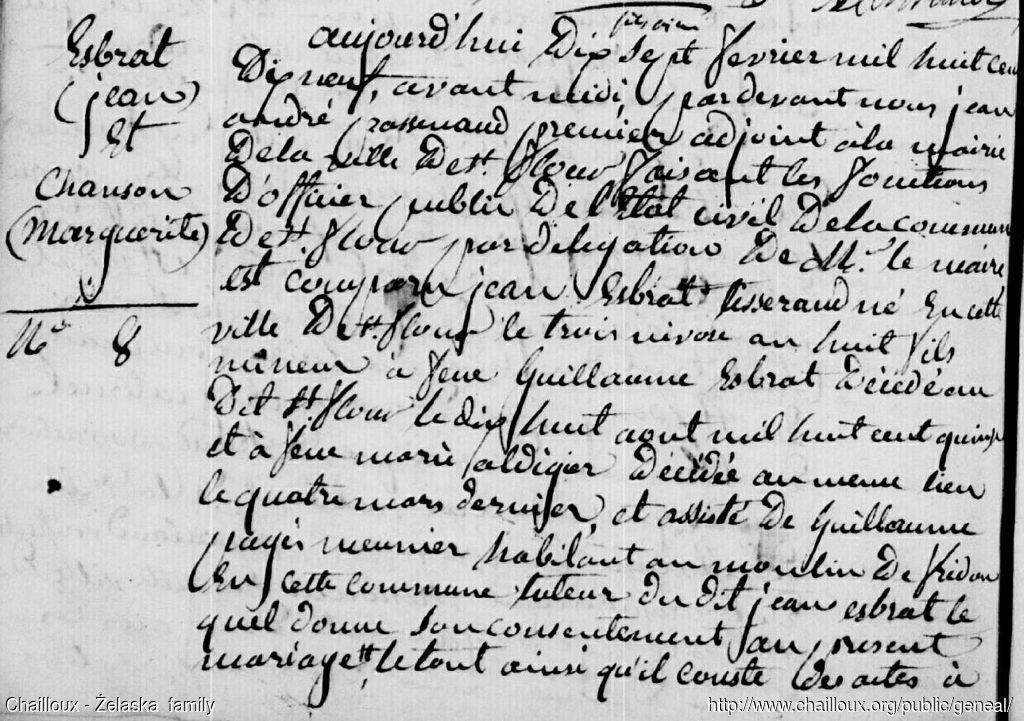 Esbrat
(jean)
Et
Chanson
(Marguerite)
N° 8
aujourd'hui Dix sept fevrier mil huit cen
Dix neuf, avant midi, pardevant nous jean
andré premier adjoint à la mairie
De la ville De st. flour faisant les fonctions
D'officier public De l'Etat civil De la commune
De st. flour par delegation De Mr. le maire
est comparu jean Esbrat tisserand né En cette
ville De st. flour le trois nivose an huit fils
mineur à feue Guillaume Esbrat Décédé au
Dit st. flour le dix huit aout mil huit cent quinze
et à feue marie aldigier Décédée au meme lieu
le quatre mars dernier, et assisté De Guillaume
pagès meunier habitant au moulin De
En cette commune tuteur du dit jean esbrat le
quel donne son consentement au present
mariage, le tout ainsi qu'il conste des actes à
Chailloux - Żelaska family
http://www.chailloux.org/public/geneal/